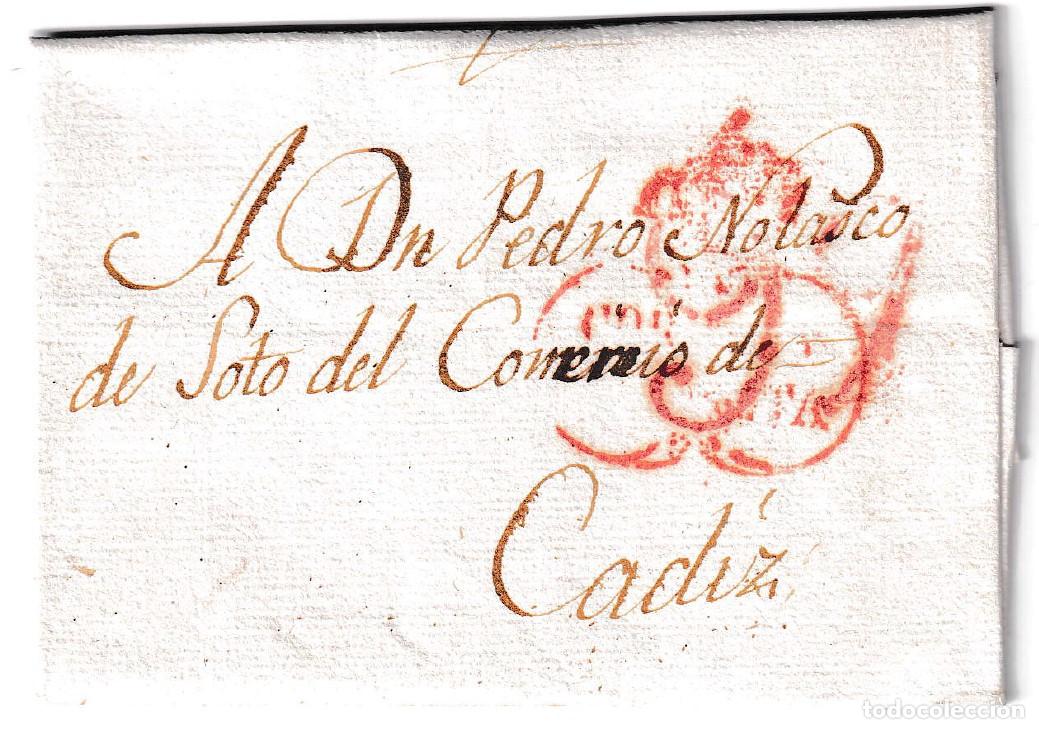 A Dn Pedro Nolasco
de Soto del Comercio de
Cadiz
todocoleccion